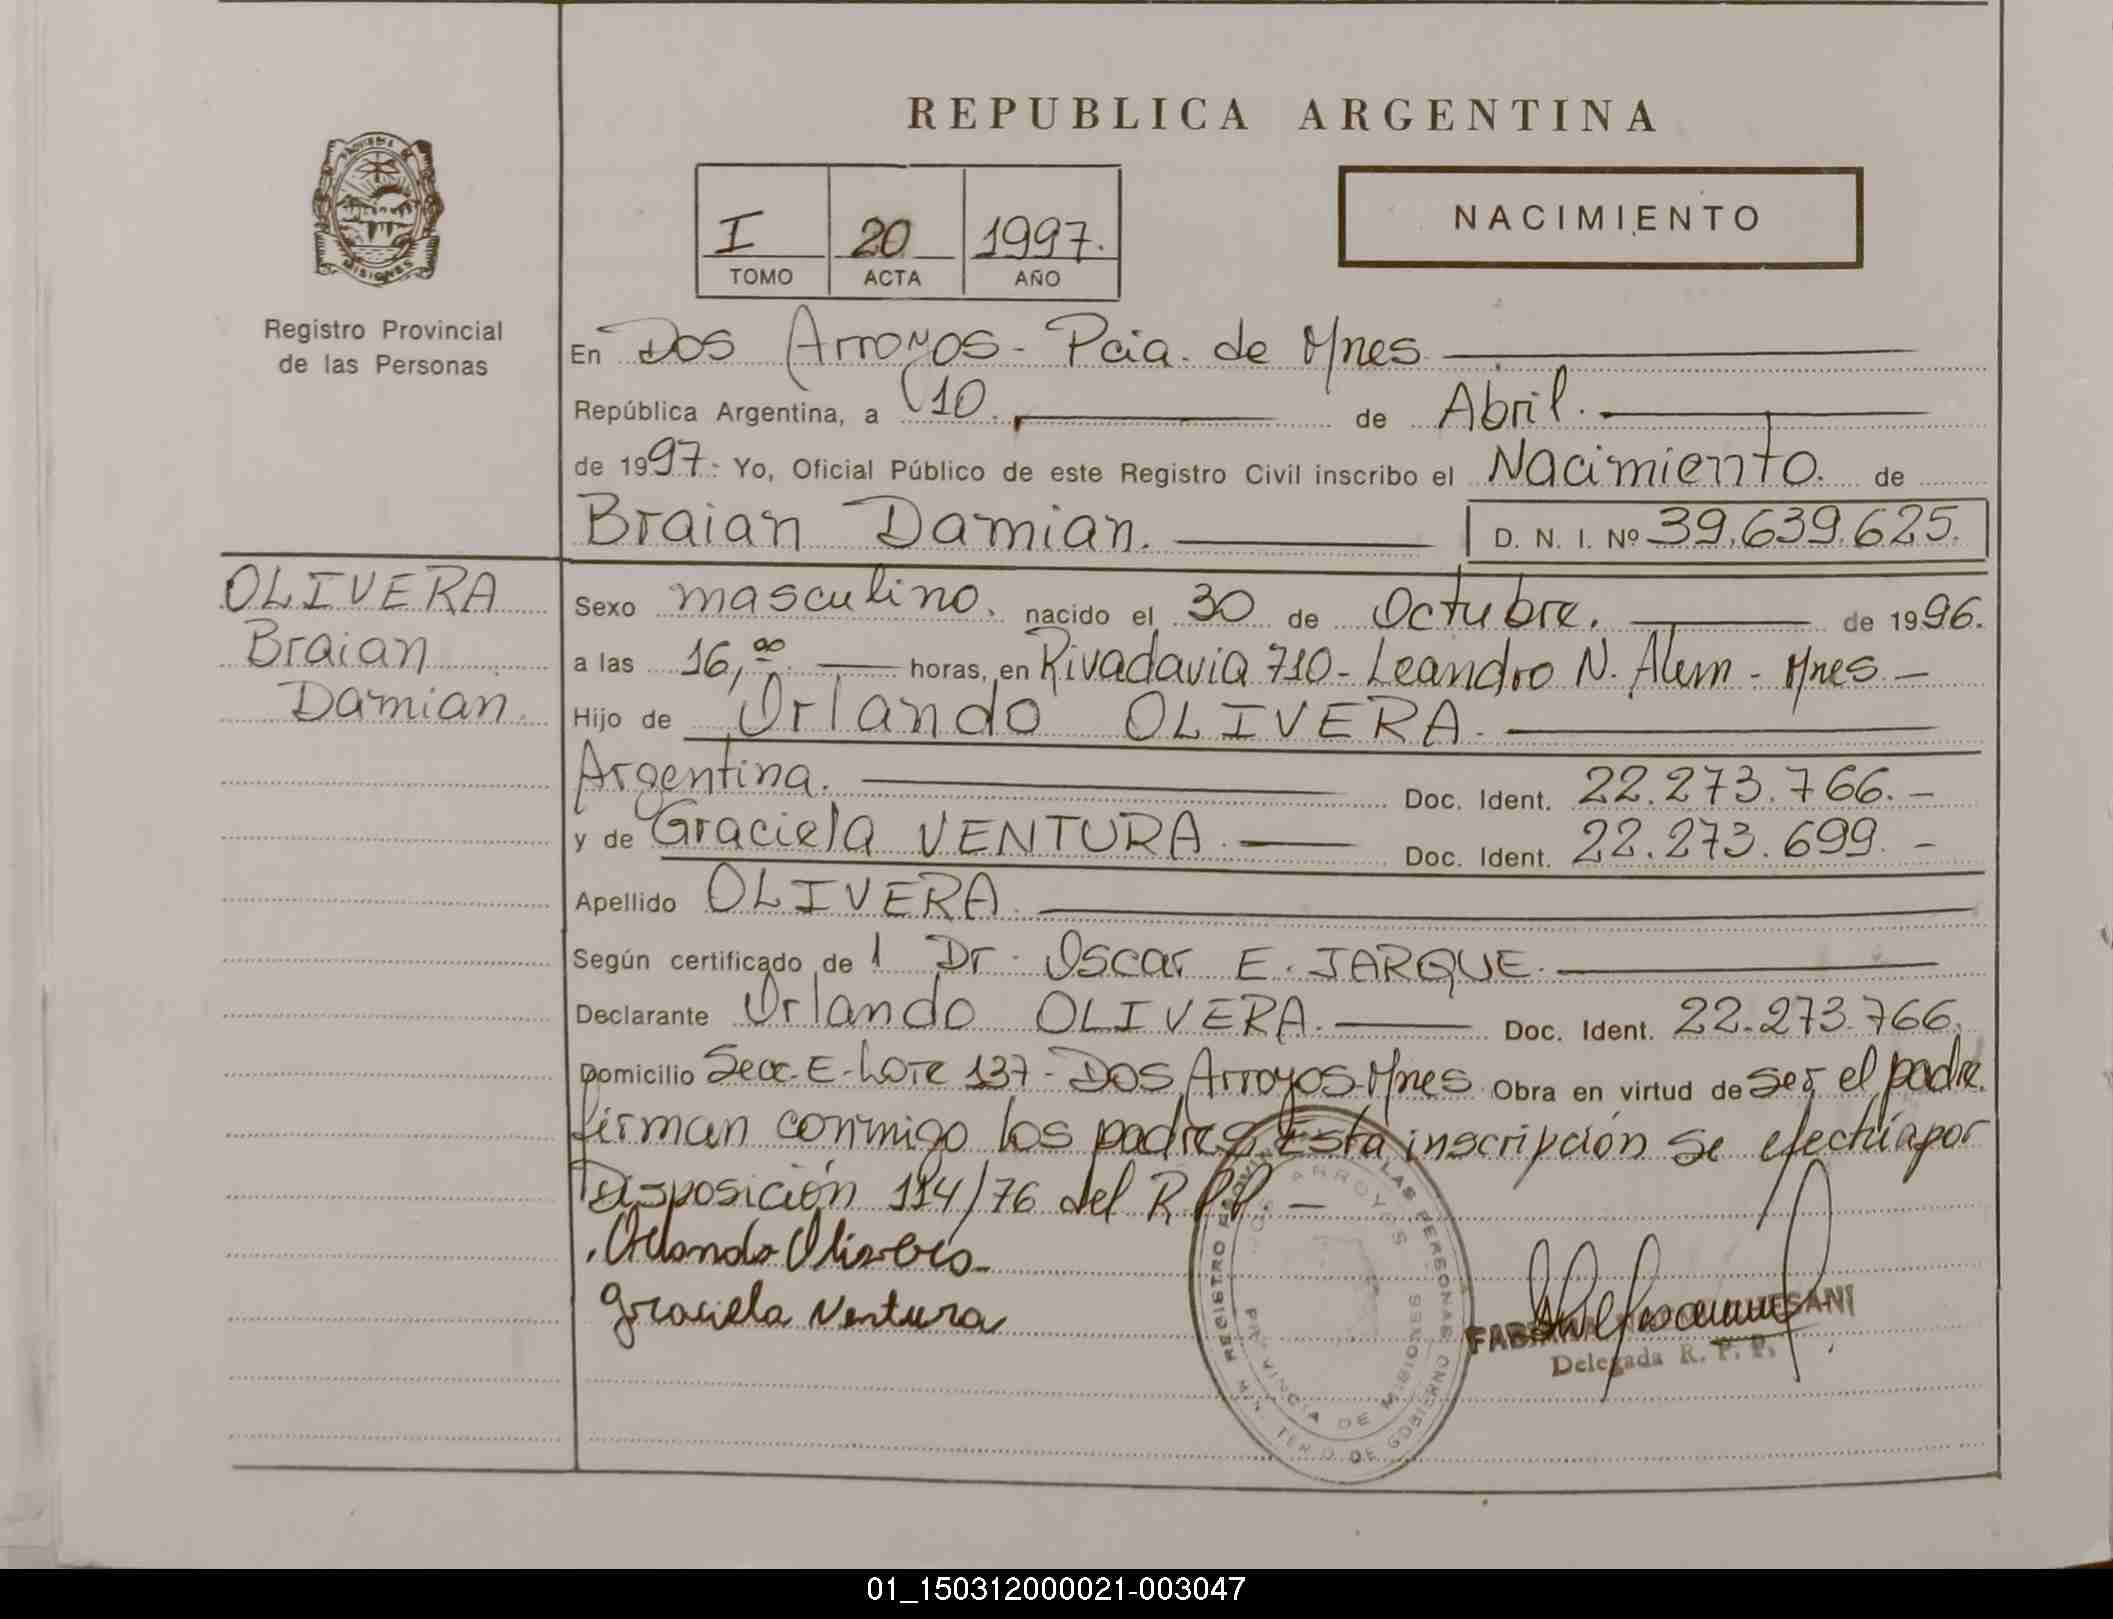 REPUBLICA ARGENTINA
PROVINCIA DE
MISIONES
Registro Provincial
de las Personas
I 20 1997.
TOMO ACTA AÑO
NACIMIENTO
En Dos Arroyos - Pcia. de Mnes
República Argentina, a 10. de Abril.
de 1997.: Yo, Oficial Público de este Registro Civil inscribo el Nacimiento. de
Braian Damian. D. N. I. Nº 39.639.625.
OLIVERA
Braian
Damian.
Sexo masculino. nacido el 30 de Octubre. de 1996.
a las 16,00 horas, en Rivadavia 710 - Leandro N. Alem - Mnes. -
Hijo de Orlando OLIVERA.
Argentina. Doc. Ident. 22.273.766. -
y de Graciela VENTURA. Doc. Ident. 22.273.699. -
Apellido OLIVERA.
Según certificado de l Dr. Oscar E. JARQUE.
Declarante Orlando OLIVERA. Doc. Ident. 22.273.766.
Domicilio Secc. E - Lote 137 - Dos Arroyos - Mnes Obra en virtud de ser el padre.
firman conmigo los padres Esta inscripción se efectúa por
Disposición 114/76 del R.P.P. -
Orlando Olivera -
Graciela Ventura
REGISTRO PROVINCIAL DE LAS PERSONAS
DOS ARROYOS
PROVINCIA DE MISIONES
MINISTERIO DE GOBIERNO
Delegada R. P. P.
01_150312000021-003047